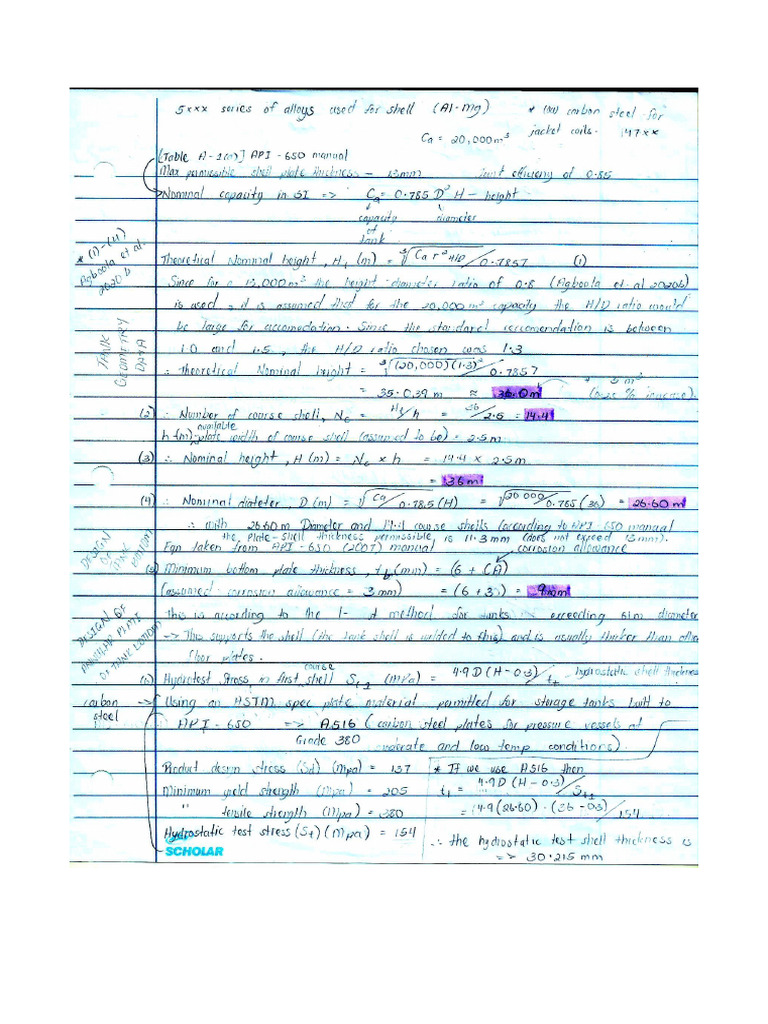 5xxx series of alloys used for shell (Al-Mg)
* low carbon steel for jacket coils.
Ca = 20,000m³
[Table A-1(a)] API-650 manual
Max permissible shell plate thickness - 13mm
Joint efficieny of 0.85
Nominal capacity in SI => Ca = 0.785 D² H - height
capacity of tank
diameter
* (1)-(4) Agboola et al. 2020b
TANK GEOMETRY DATA
Theoretical Nominal height, H, (m) = ³√Ca r² / 0.7857 (1)
Since for a 13,000m³ the height-diameter ratio of 0.8 (Agboola et. al 2020b)
is used, it is assumed that for the 20,000 m³ capacity the H/D ratio would
be large for accomodation. Since the standard reccomendation is between
1.0 and 1.5, the H/D ratio chosen was 1.3
∴ Theoretical Nominal height = ³√(20,000)(1.3)² / 0.7857
= 35.039 m ≈ 36.0m
(2) ∴ Number of coarse shell, Nc = H/h = 36/2.5 = 14.4
h (m) available plate width of coarse shell (assumed to be) = 2.5m
(3) ∴ Nominal height, H (m) = Nc × h = 14.4 × 2.5m
= 36 m
(4) ∴ Nominal diateter, D (m) = √Ca / 0.785(H) = √20 000 / 0.785 (36) = 26.60 m
∴ with 26.60 m Diameter and 14.4 course shells (according to API 650 manual
the plate-shell thickness permissible is 11.3 mm (does not exceed 13mm).
DESIGN OF TANK BOTTOM
Eqn taken from API-650 (2007) manual
corrosion allowance
(5) Minimum bottom plate thickness, tb (mm) = (6 + CA)
(assumed corrosion allowance = 3 mm) = (6 + 3) = 9mm
DESIGN OF ANNULAR PLATE OF TANK BOTTOM
This is according to the 1- method for tanks exceeding 61m diameter
-> This supports the shell (the tank shell is welded to this) and is usually thicker than other
floor plates.
(6) Hydrotest Stress in first course shell St1 (MPa) = 4.9D(H-0.3) / t1 - hydrostatic shell thickness
carbon steel -> Using an ASTM spec plate material permitted for storage tanks built to
API-650 => A516 (carbon steel plates for pressure vessels at
Grade 380 moderate and low temp conditions).
Product design stress (Sd) (Mpa) = 137
* If we use A516 then
Minimum yield strength (Mpa) = 205
t1 = 4.9D(H-0.3) / St1
" tensile strength (Mpa) = 380
= (4.9(26.60) · (36 - 0.3) / 154
Hydrostatic test stress (St) (Mpa) = 154
∴ the hydrostatic test shell thickness is
=> 30.215 mm
SCHOLAR